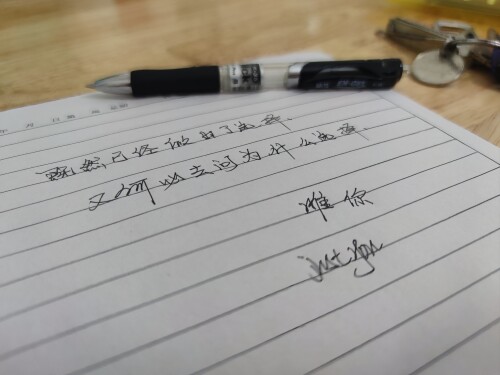 年 月 日
既然已经做出了选择.
又何必去问为什么选择.
唯你
just you